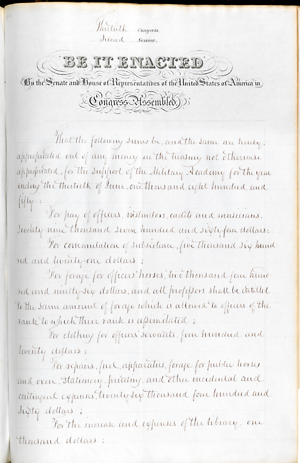 Thirtieth Congress
Second Session
BE IT ENACTED
By the Senate and House of Representatives of the United States of America in
Congress Assembled,
That the following sums be, and the same are hereby,
appropriated out of any money in the treasury not otherwise
appropriated, for the support of the Military Academy for the year
ending the thirtieth of June, one thousand eight hundred and
fifty:
For pay of officers, instructors, cadets and musicians,
seventy nine thousand seven hundred and sixty four dollars:
For commutation of subsistence, five thousand six hund
red and twenty-one dollars;
For forage for officers' horses, two thousand four hund
red and ninety-six dollars, and all professors shall be entitled
to the same amount of forage which is allowed to officers of the
rank to which their rank is assimilated;
For clothing for officers' servants, four hundred and
twenty dollars;
For repairs, fuel, apparatus, forage for public horses
and oxen, stationery, printing, and other incidental and
contingent expenses, twenty six thousand four hundred and
sixty dollars;
For the increase and expenses of the library, one
thousand dollars;